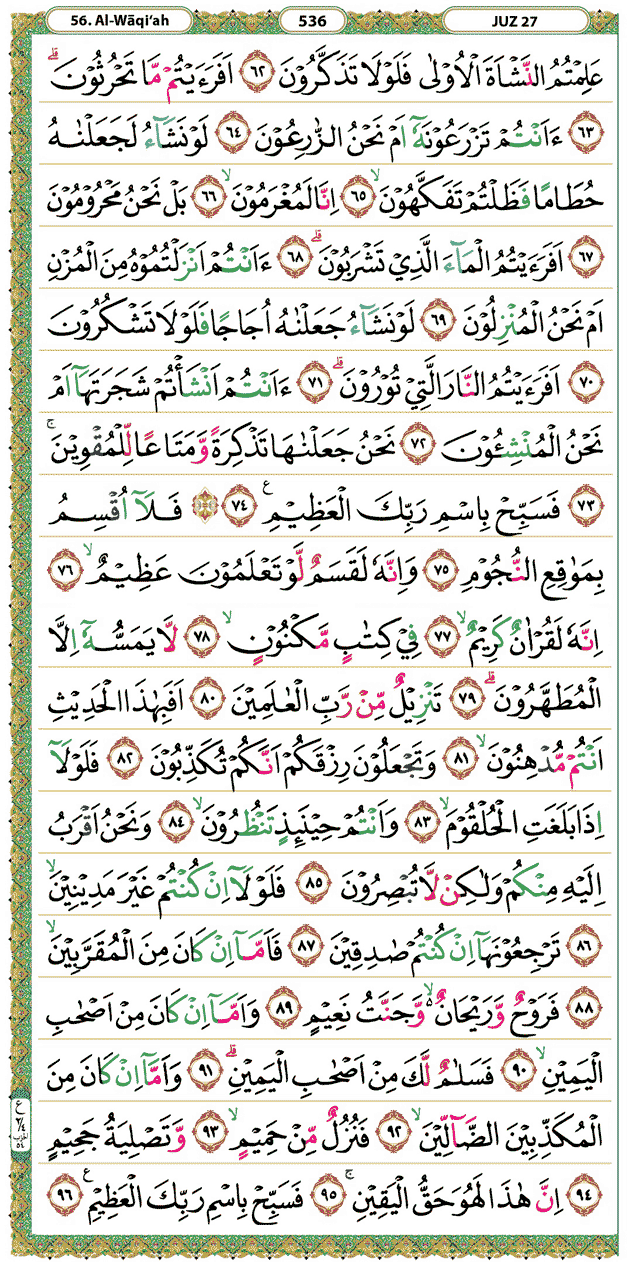 56. Al-Wāqi‘ah 536 JUZ 27
عَلِمْتُمُ النَّشْاَةَ الْاُوْلٰى فَلَوْلَا تَذَكَّرُوْنَ ﴿٦٢﴾ اَفَرَءَيْتُمْ مَّا تَحْرُثُوْنَۗ
﴿٦٣﴾ ءَاَنْتُمْ تَزْرَعُوْنَهٗٓ اَمْ نَحْنُ الزّٰرِعُوْنَ ﴿٦٤﴾ لَوْ نَشَاۤءُ لَجَعَلْنٰهُ
حُطَامًا فَظَلْتُمْ تَفَكَّهُوْنَۙ ﴿٦٥﴾ اِنَّا لَمُغْرَمُوْنَۙ ﴿٦٦﴾ بَلْ نَحْنُ مَحْرُوْمُوْنَ
﴿٦٧﴾ اَفَرَءَيْتُمُ الْمَاۤءَ الَّذِيْ تَشْرَبُوْنَۗ ﴿٦٨﴾ ءَاَنْتُمْ اَنْزَلْتُمُوْهُ مِنَ الْمُزْنِ
اَمْ نَحْنُ الْمُنْزِلُوْنَ ﴿٦٩﴾ لَوْ نَشَاۤءُ جَعَلْنٰهُ اُجَاجًا فَلَوْلَا تَشْكُرُوْنَ
﴿٧٠﴾ اَفَرَءَيْتُمُ النَّارَ الَّتِيْ تُوْرُوْنَۗ ﴿٧١﴾ ءَاَنْتُمْ اَنْشَأْتُمْ شَجَرَتَهَآ اَمْ
نَحْنُ الْمُنْشِئُوْنَ ﴿٧٢﴾ نَحْنُ جَعَلْنٰهَا تَذْكِرَةً وَّمَتَاعًا لِّلْمُقْوِيْنَۚ
﴿٧٣﴾ فَسَبِّحْ بِاسْمِ رَبِّكَ الْعَظِيْمِ ࣖ ﴿٧٤﴾ ۞ فَلَآ اُقْسِمُ
بِمَوٰقِعِ النُّجُوْمِ ﴿٧٥﴾ وَاِنَّهٗ لَقَسَمٌ لَّوْ تَعْلَمُوْنَ عَظِيْمٌۙ ﴿٧٦﴾
اِنَّهٗ لَقُرْاٰنٌ كَرِيْمٌۙ ﴿٧٧﴾ فِيْ كِتٰبٍ مَّكْنُوْنٍۙ ﴿٧٨﴾ لَّا يَمَسُّهٗٓ اِلَّا
الْمُطَهَّرُوْنَۗ ﴿٧٩﴾ تَنْزِيْلٌ مِّنْ رَّبِّ الْعٰلَمِيْنَ ﴿٨٠﴾ اَفَبِهٰذَا الْحَدِيْثِ
اَنْتُمْ مُّدْهِنُوْنَۙ ﴿٨١﴾ وَتَجْعَلُوْنَ رِزْقَكُمْ اَنَّكُمْ تُكَذِّبُوْنَ ﴿٨٢﴾ فَلَوْلَآ
اِذَا بَلَغَتِ الْحُلْقُوْمَۙ ﴿٨٣﴾ وَاَنْتُمْ حِيْنَىِٕذٍ تَنْظُرُوْنَۙ ﴿٨٤﴾ وَنَحْنُ اَقْرَبُ
اِلَيْهِ مِنْكُمْ وَلٰكِنْ لَّا تُبْصِرُوْنَ ﴿٨٥﴾ فَلَوْلَآ اِنْ كُنْتُمْ غَيْرَ مَدِيْنِيْنَۙ
﴿٨٦﴾ تَرْجِعُوْنَهَآ اِنْ كُنْتُمْ صٰدِقِيْنَ ﴿٨٧﴾ فَاَمَّآ اِنْ كَانَ مِنَ الْمُقَرَّبِيْنَۙ
﴿٨٨﴾ فَرَوْحٌ وَّرَيْحَانٌ ەۙ وَّجَنَّتُ نَعِيْمٍ ﴿٨٩﴾ وَاَمَّآ اِنْ كَانَ مِنْ اَصْحٰبِ
الْيَمِيْنِۙ ﴿٩٠﴾ فَسَلٰمٌ لَّكَ مِنْ اَصْحٰبِ الْيَمِيْنِۗ ﴿٩١﴾ وَاَمَّآ اِنْ كَانَ مِنَ
الْمُكَذِّبِيْنَ الضَّاۤلِّيْنَۙ ﴿٩٢﴾ فَنُزُلٌ مِّنْ حَمِيْمٍۙ ﴿٩٣﴾ وَّتَصْلِيَةُ جَحِيْمٍ
﴿٩٤﴾ اِنَّ هٰذَا لَهُوَ حَقُّ الْيَقِيْنِۚ ﴿٩٥﴾ فَسَبِّحْ بِاسْمِ رَبِّكَ الْعَظِيْمِ ࣖ ﴿٩٦﴾
ع
٣/٤
الحزب
٥٤